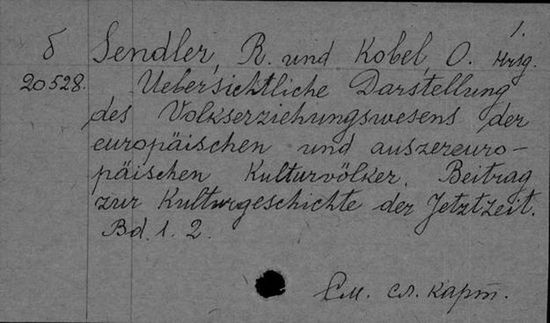 1.
δ Sendler, R. und Kobel, O. Hrsg.
20528. Uebersichtliche Darstellung
des Volkserziehungswesens der
europäischen und auszereuro-
päischen Kulturvölker. Beitrag
zur Kulturgeschichte der Jetztzeit.
Bd. 1. 2.
См. сл. карт.